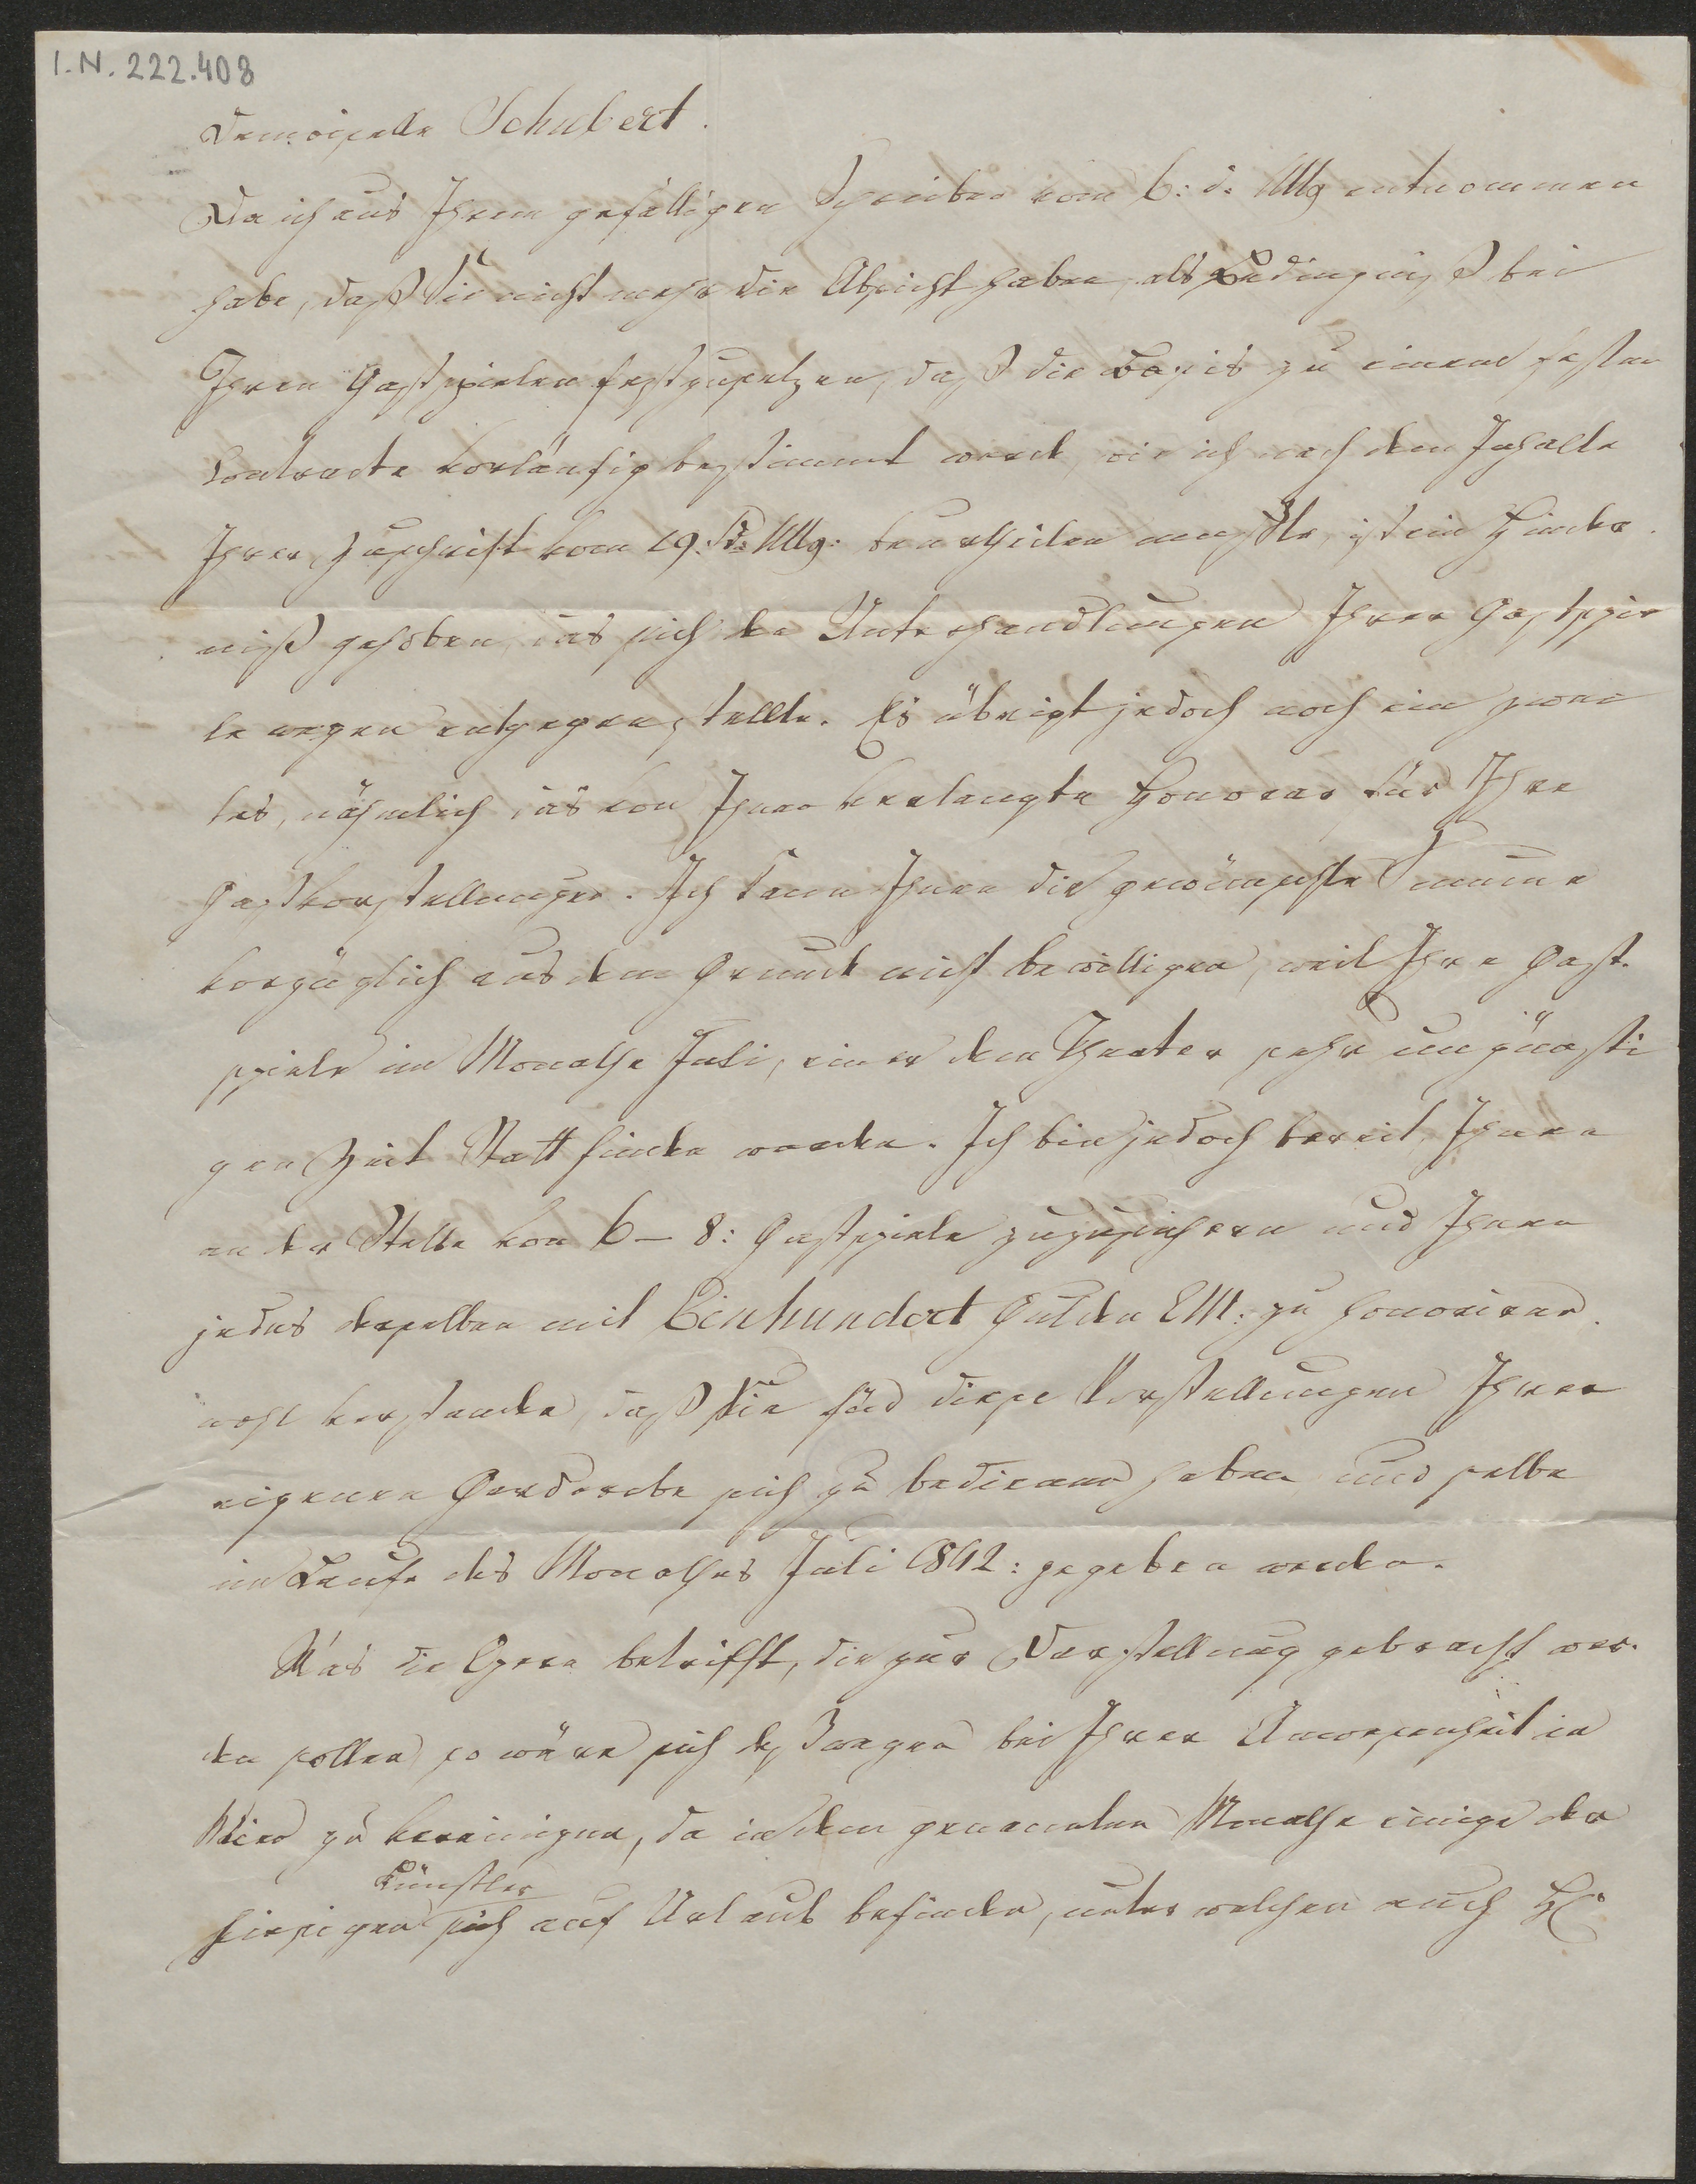 I.N. 222.408
Demoiselle Schubert.
Da ich aus Ihrem gefälligen Schreiben vom 6: d. Mts entnommen
habe, daß Sie nicht mehr die Absicht haben, als Bedingniß bei
Ihren Gastspielen festzusetzen, daß die Basis zu einem festen
Contracte vorläufig bestimmt werde, wie ich nach dem Inhalte
Ihrer Zuschrift vom 19: v. Mts: beurtheilen mußte, ist ein Hinder
niß gehoben, das sich den Unterhandlungen Ihrer Gastspie
le wegen entgegenstellte. Es übrigt jedoch noch ein zwei
tes, nähmlich das von Ihnen verlangte Honorar für Ihre
Gastvorstellungen. Ich kann Ihnen die gewünschte Summe
vorzüglich aus dem Grunde nicht bewilligen, weil Ihre Gast-
spiele im Monathe Juli, einer dem Theater sehr ungünsti
gen Zeit Statt finden werden. Ich bin jedoch bereit, Ihnen
an der Stelle von 6 – 8: Gastspiele zuzusichern und Ihnen
jedes derselben mit Einhundert Gulden CM: zu honoriren.
wohl verstanden, daß Sie für diese Vorstellungen Ihrer
eigenen Garderobe sich zu bedienen haben und selbe
im Laufe des Monathes Juli 1842: gegeben werden.
Was die Opern betrifft, die zur Darstellung gebracht wer-
den sollen, so wäre sich deßwegen bei Ihrer Anwesenheit in
Wien zu vereinigen, da in dem genannten Monathe einige der
Künstler
hiesigen sich auf Urlaub befinden, unter welchen auch H